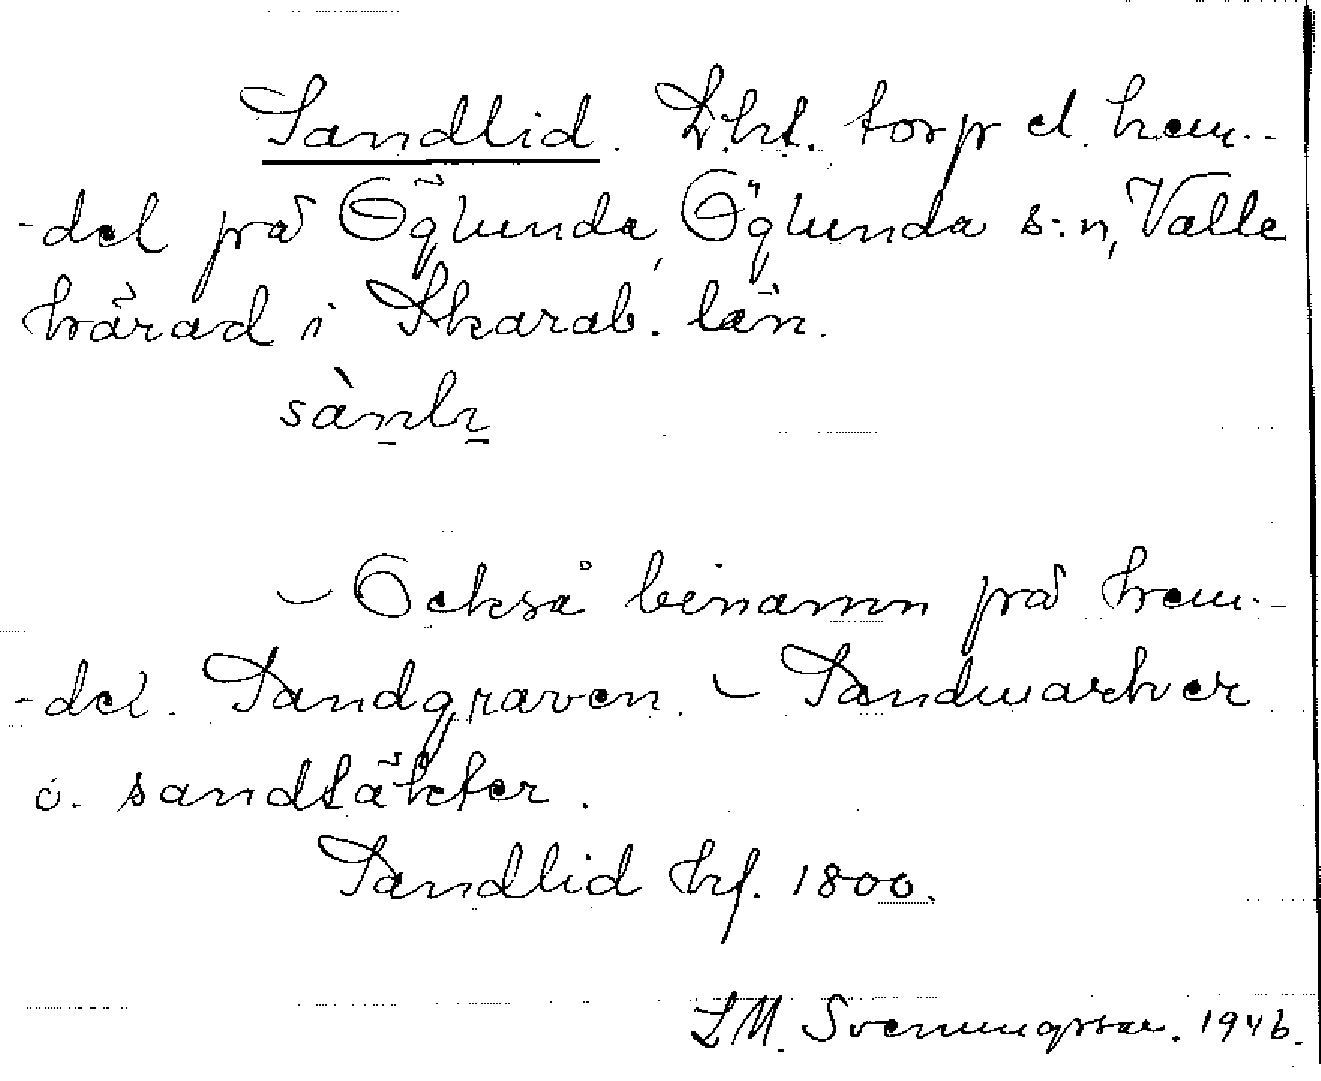 Sandlid. Lht. torp el. hem-
-del på Öglunda, Öglunda s:n, Valle
härad i Skarab. län.
sàn̠lı̠
– Också binamn på hem-
-del. Sandgraven. – Sandmarker
o. sandtäkter.
Sandlid hf. 1800.
LM. Svenungsson. 1946.